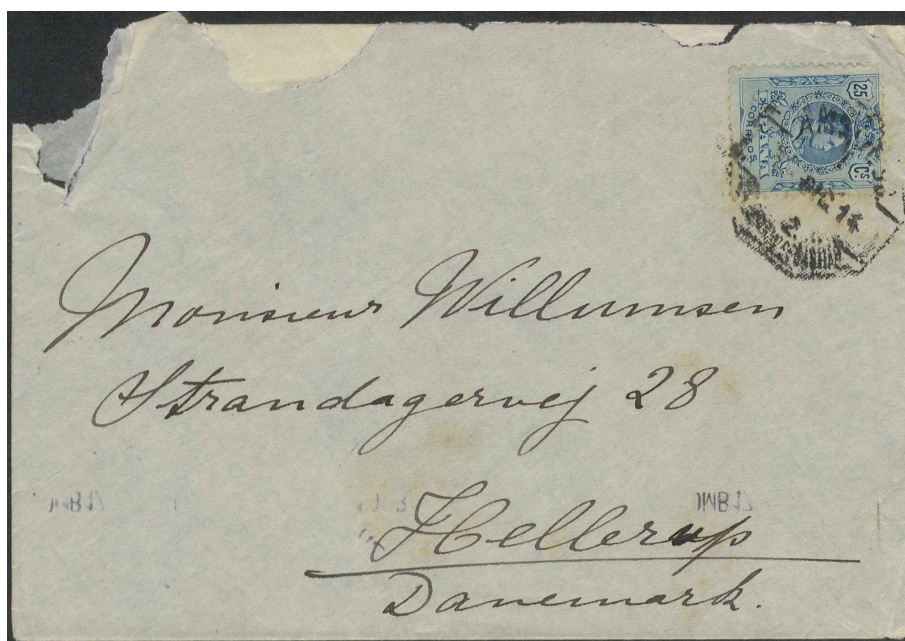 25 Cs
CORREOS
DIC 14
Monsieur Willumsen
Strandagervej 28
Hellerup
Danemark.